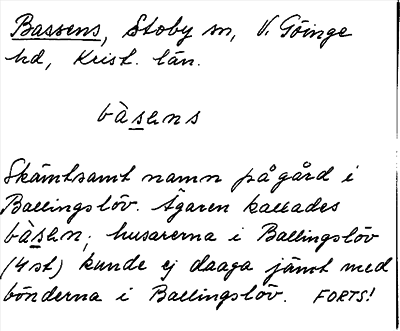 Bassens, Stoby sn, V. Göinge
hd, Krist. län.
bàsens
Skämtsamt namn på gård i
Ballingslöv. Ägaren kallades
bàsen; husarerna i Ballingslöv
(4 st) kunde ej daaga jämt med
bönderna i Ballingslöv. FORTS!